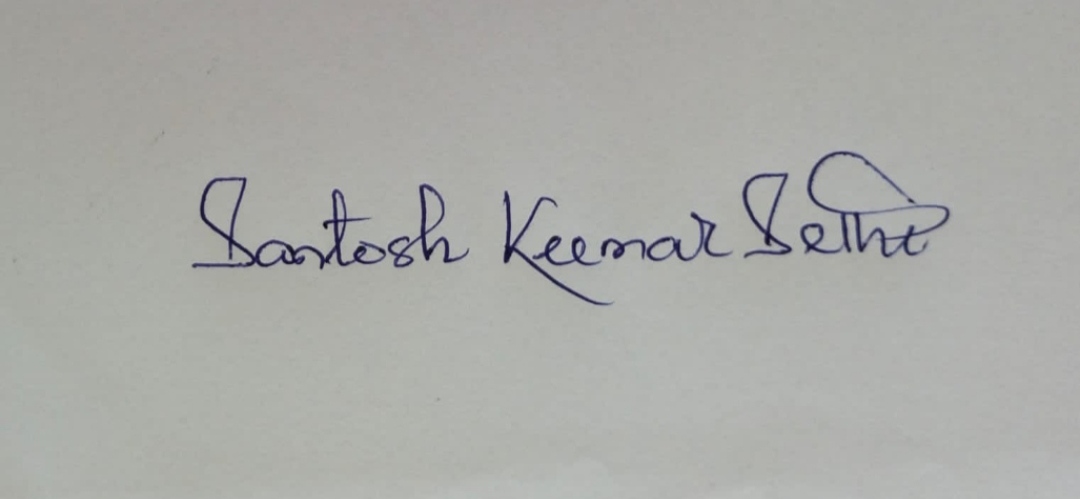 Santosh Kumar Sethi